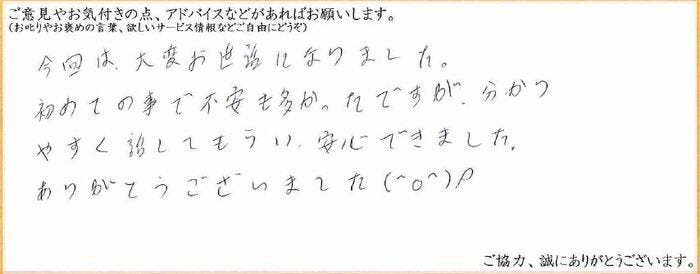 ご意見やお気付きの点、アドバイスなどがあればお願いします。
(お叱りやお褒めの言葉、欲しいサービス情報などご自由にどうぞ)
今回は、大変お世話になりました。
初めての事で不安も多かったですが、分かり
やすく話してもらい、安心できました。
ありがとうございました(^o^)♪
ご協力、誠にありがとうございます。